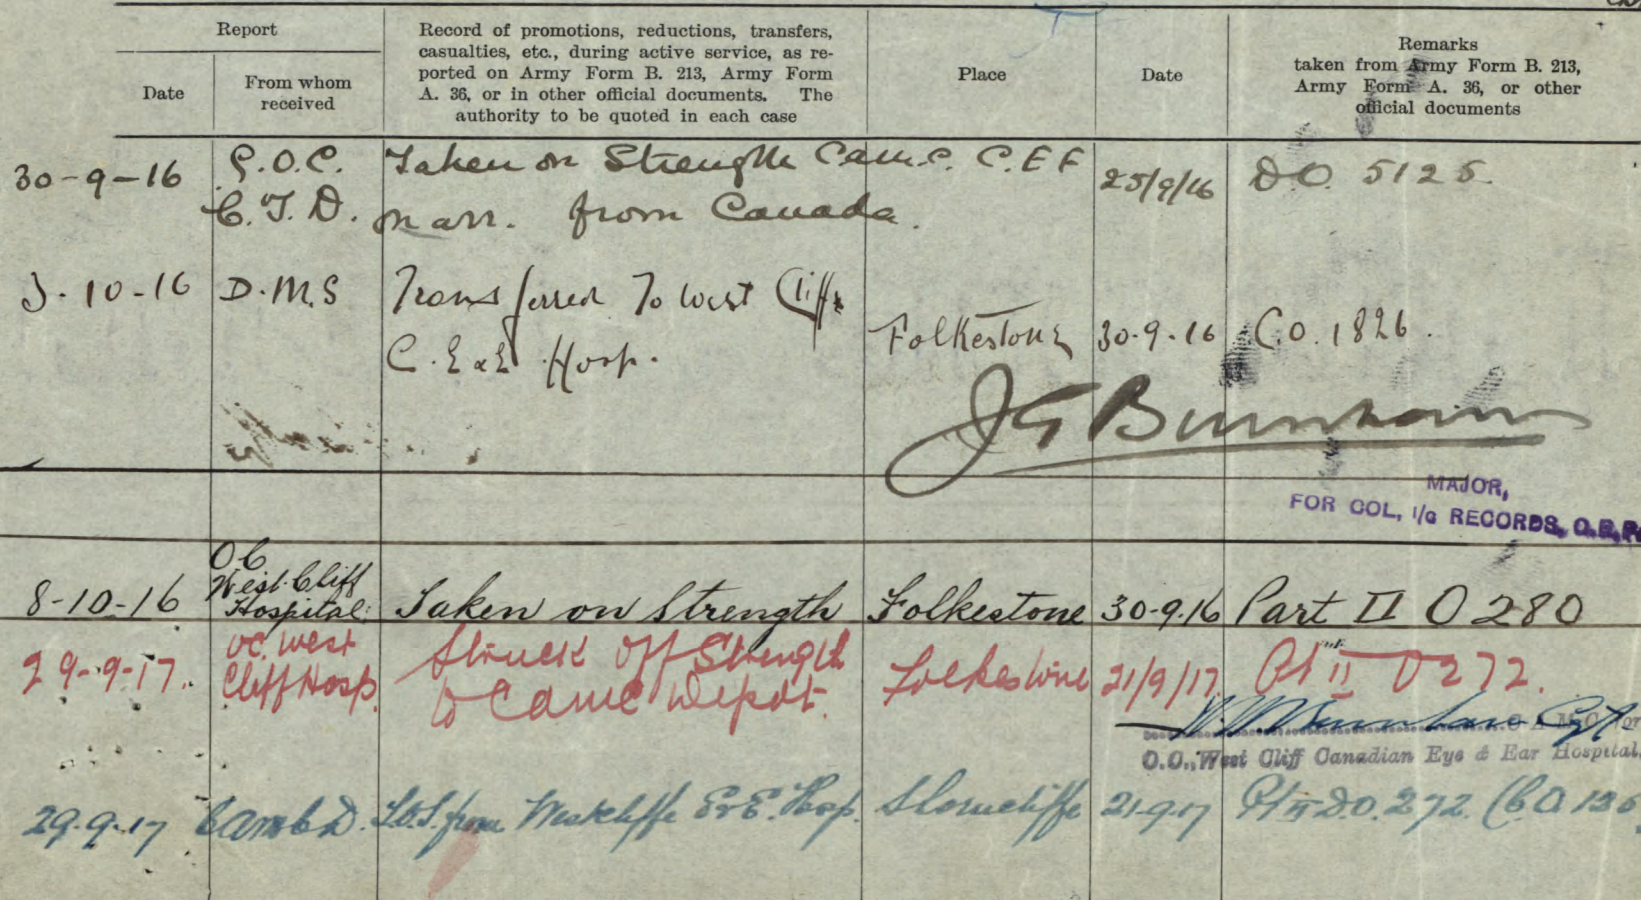 Report
Date
From whom
received
Record of promotions, reductions, transfers,
casualties, etc., during active service, as re-
ported on Army Form B. 213, Army Form
A. 36, or in other official documents. The
authority to be quoted in each case
Place
Date
Remarks
taken from Army Form B. 213,
Army Form A. 36, or other
official documents
30-9-16 G.O.C. Taken on Strength Camc. C.E.F 25/9/16 D.O. 5125
C.T.D. on arr. from Canada.
3-10-16 D.M.S Transferred To West Cliffe
C. E & E Hosp. Folkestone 30-9-16 C.O. 1826.
J G Burnham
MAJOR,
FOR COL, I/C RECORDS,
8-10-16 OC
West Cliff
Hospital Taken on Strength Folkestone 30-9-16 Part II O 280
29-9-17. OC. West
Cliff Hosp. Struck Off Strength
to Camc Depot. Folkestone 21/9/17 Pt II O 272.
Capt
O.C., West Cliff Canadian Eye & Ear Hospital
29-9-17 Camc D. T.O.S. from Westcliffe E & E. Hosp. Shorncliffe 21-9-17 Pt II D.O. 272.